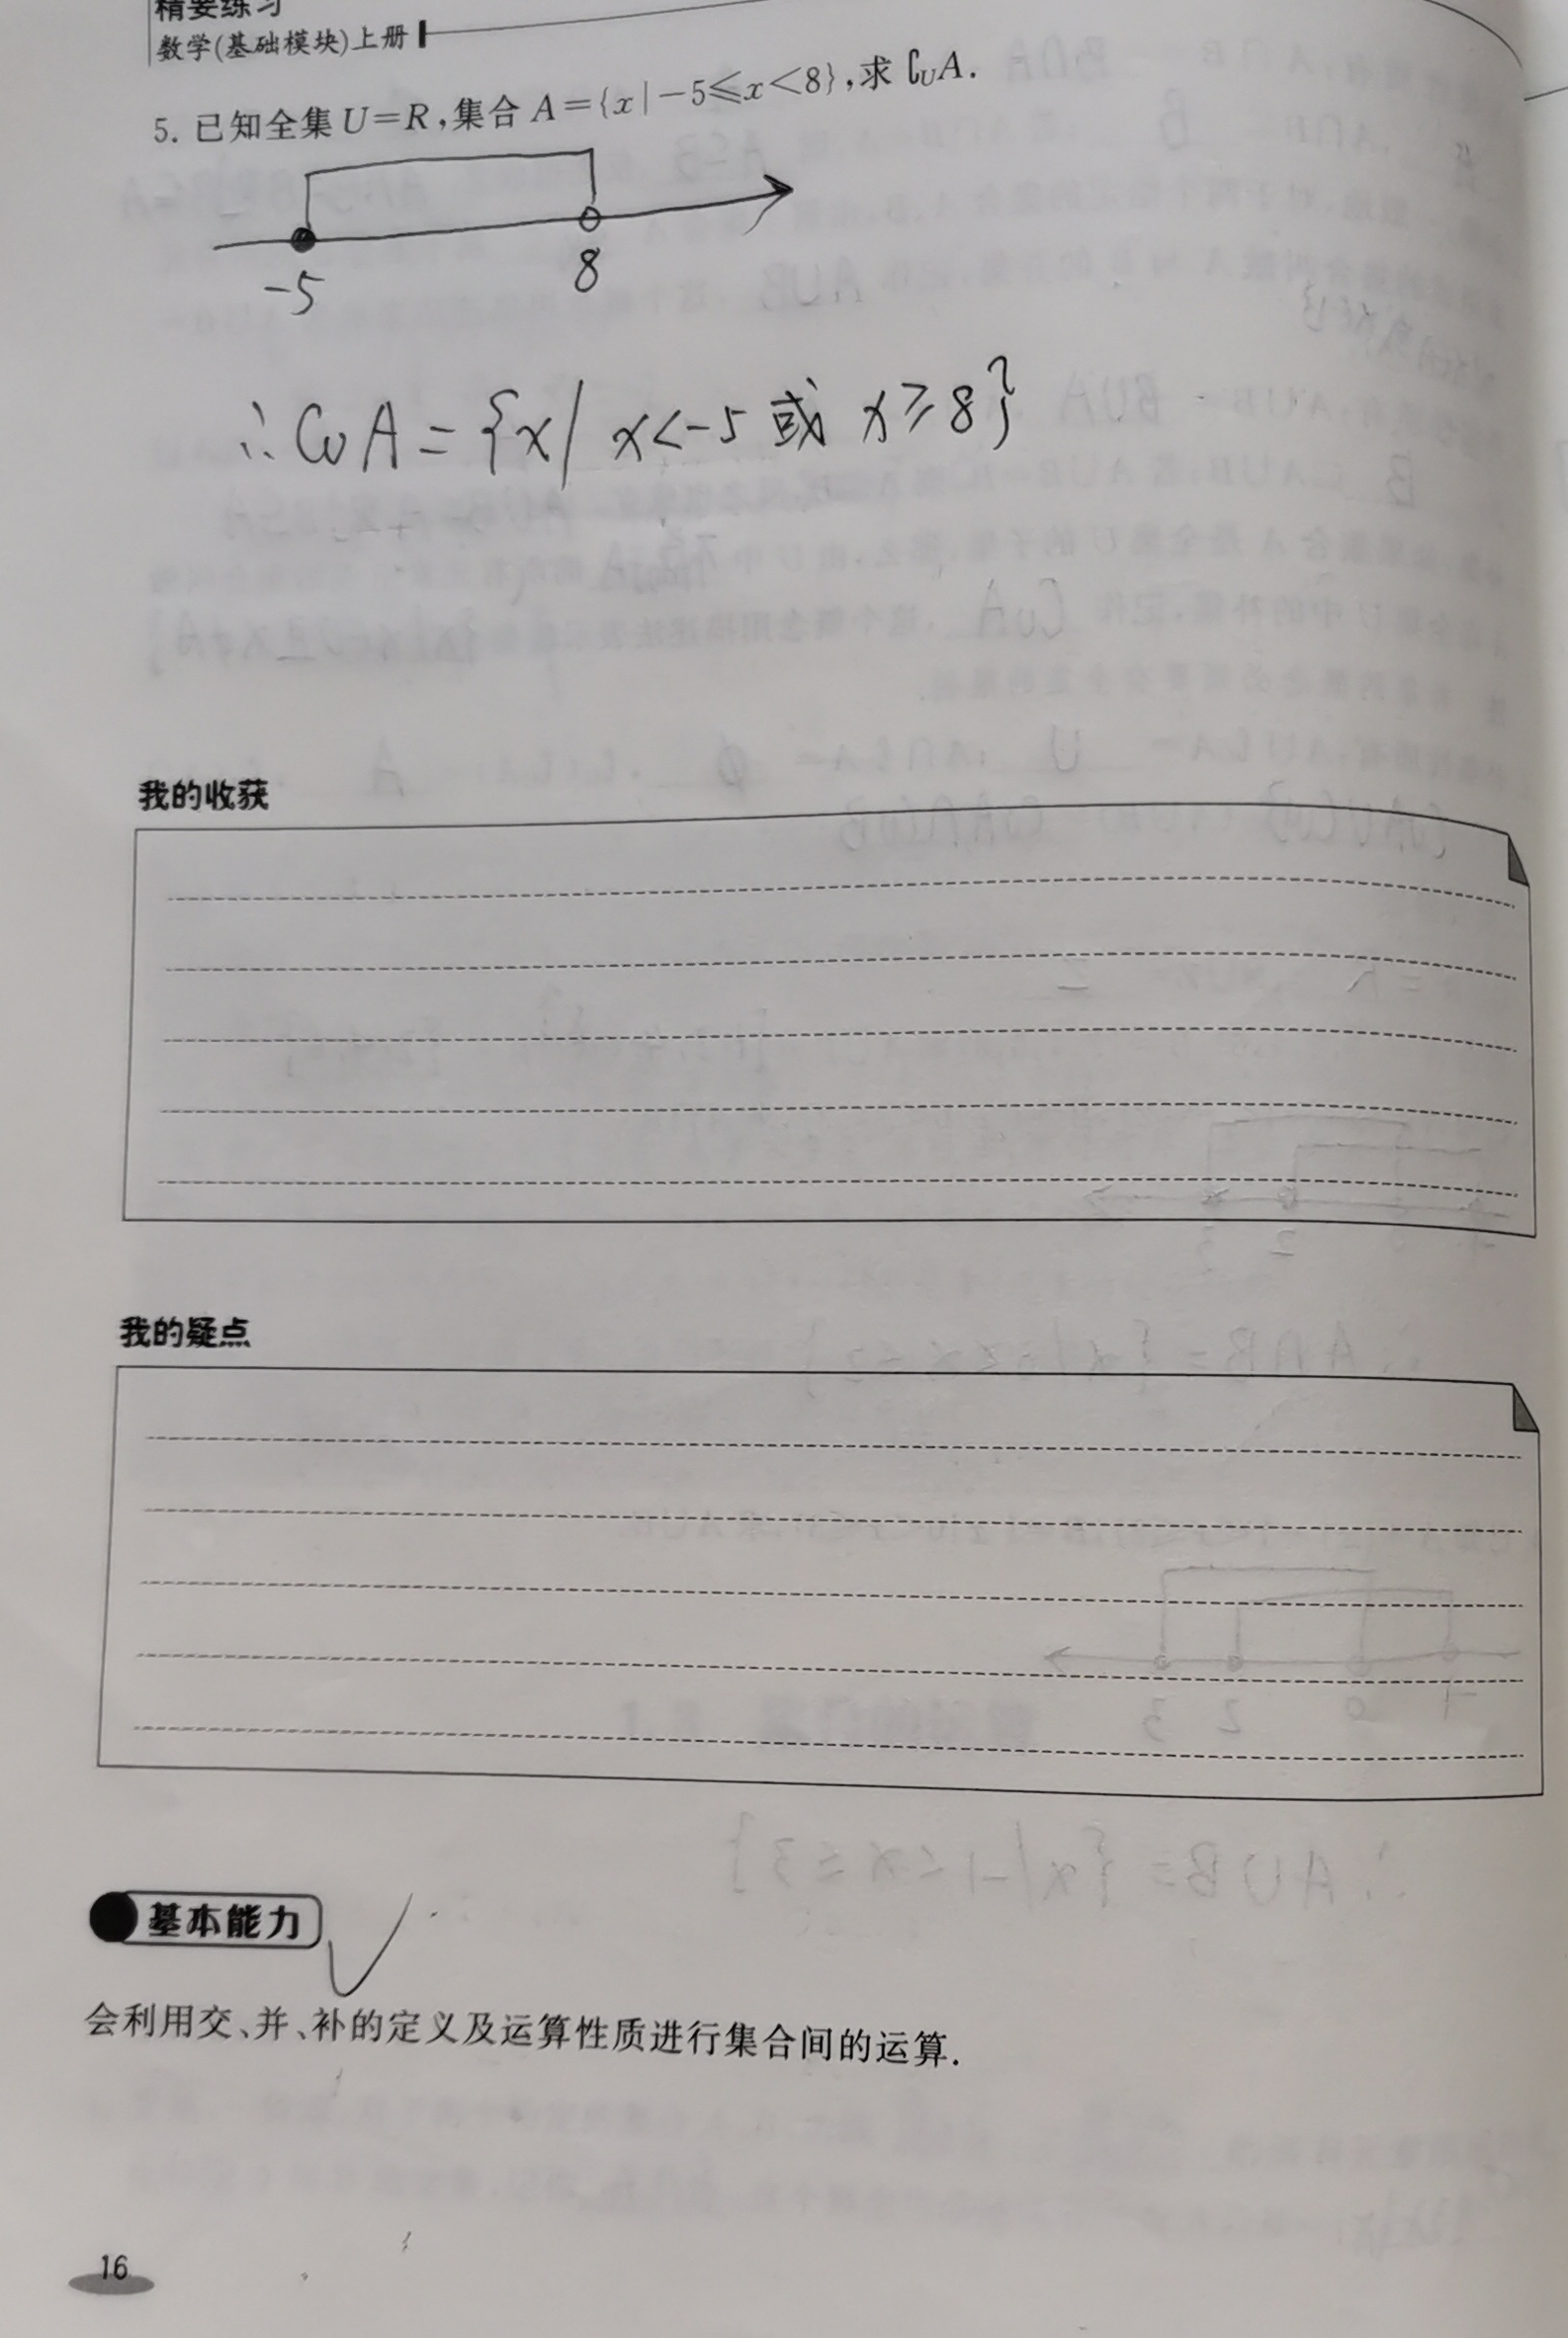 精要练习
数学(基础模块)上册
5. 已知全集U=R,集合 A={x|-5≤x<8},求∁UA.
-5 8
∴∁UA={x/ x<-5 或 x≥8}
我的收获
我的疑点
基本能力
会利用交、并、补的定义及运算性质进行集合间的运算.
16